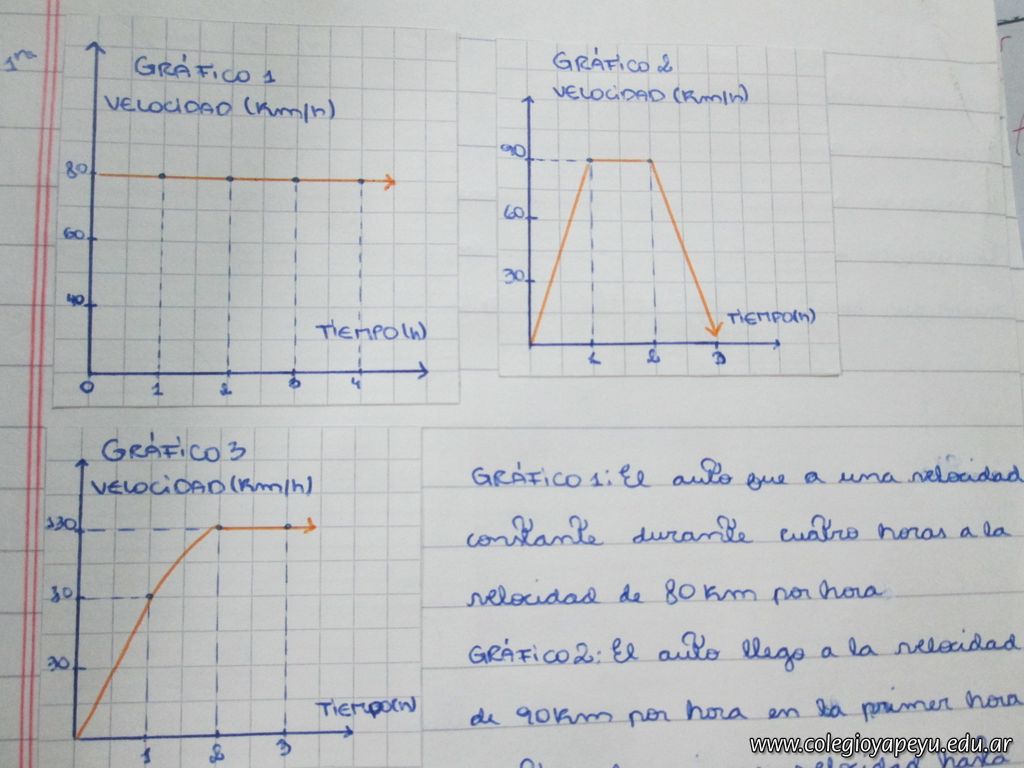 1ro
GRÁFICO 1
VELOCIDAD (Km/h)
80
60
40
TIEMPO(h)
0 1 2 3 4
GRÁFICO 2
VELOCIDAD (Km/h)
90
60
30
TIEMPO(h)
1 2 3
GRÁFICO 3
VELOCIDAD (Km/h)
130
80
30
TIEMPO(h)
1 2 3
GRÁFICO 1: El auto que a una velocidad
constante durante cuatro horas a la
velocidad de 80 Km por hora
GRÁFICO 2: El auto llego a la velocidad
de 90 Km por hora en la primer hora
velocidad hasta
www.colegioyapeyu.edu.ar